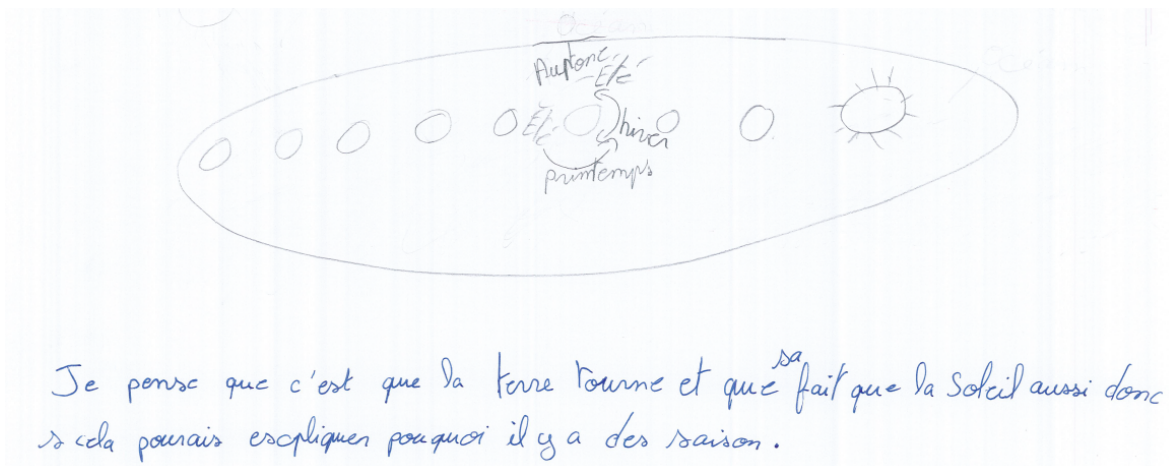 Autone
Eté
Eté
hiver
printemps
Je pense que c'est que la terre tourne et que sa fait que la Soleil aussi donc
cela pourais escpliquer pouquoi il y a des saison.